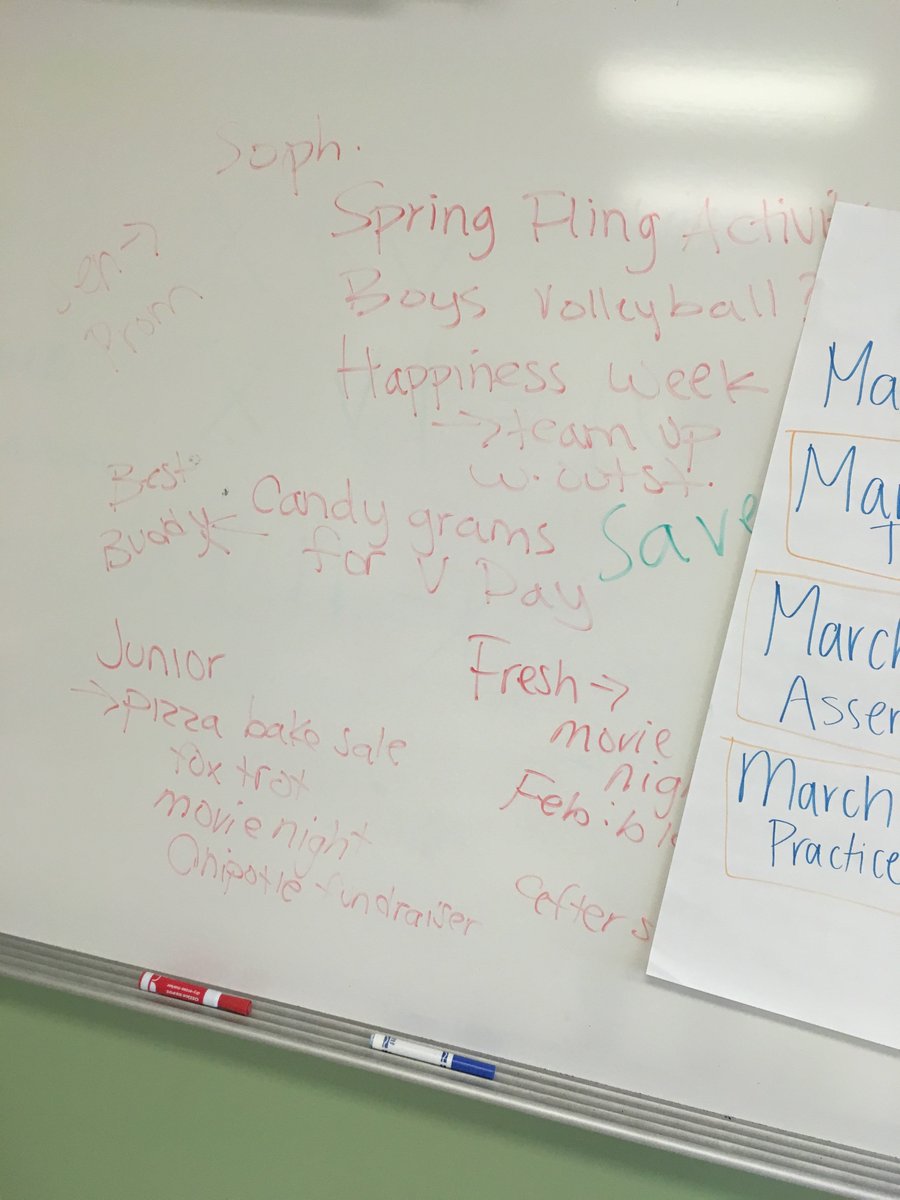 Soph.
Spring Fling Activi
Boys Volleyball?
Happiness week
→ team up
w. cutst.
Sen →
Prom
Best
Buddy
Candy grams
for V Day
Save
Junior
→ pizza bake sale
fox trot
movie night
Chipotle fundraiser
Fresh →
movie
nig
Feb.
after s
Ma
Mar
T
March
Assem
March
Practice